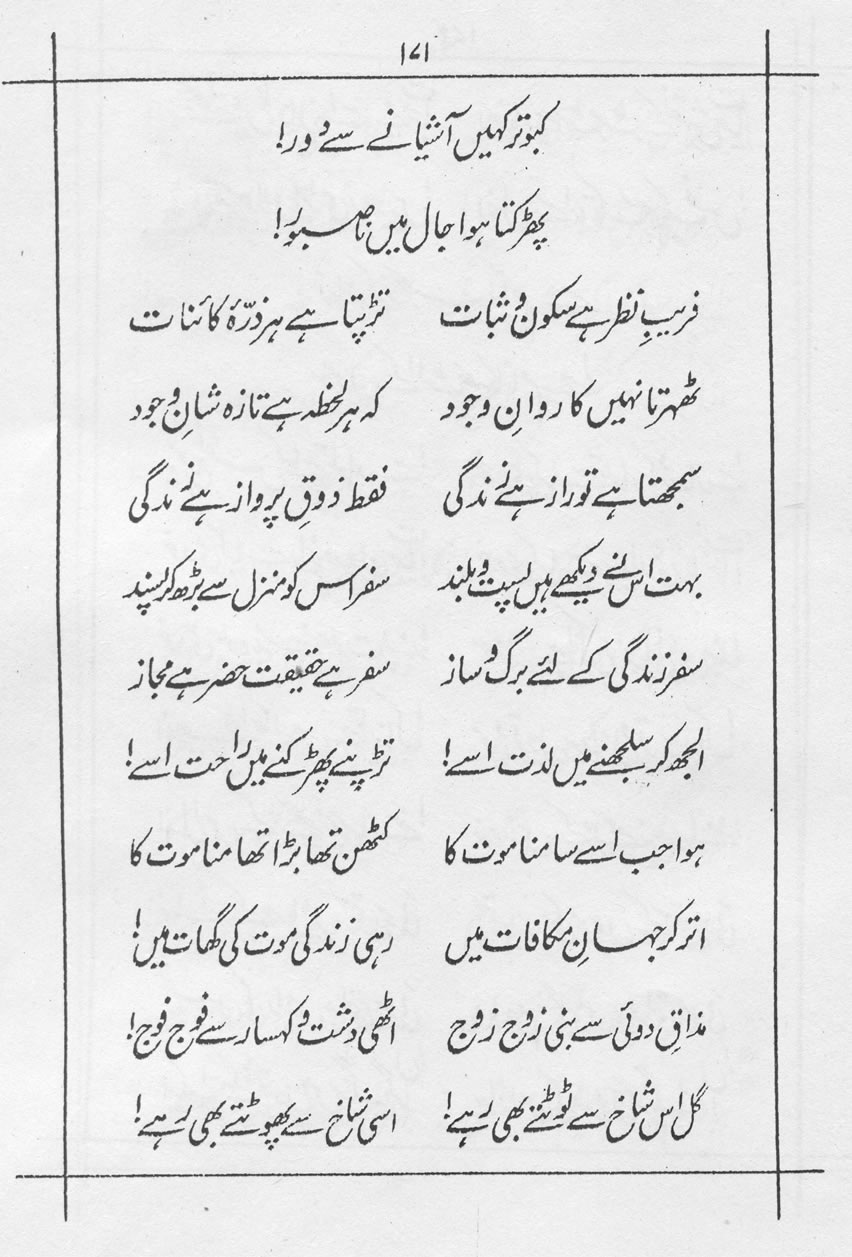 ۱۷۱
کبوتر کہیں آشیانے سے دور!
پھڑکتا ہوا جال میں ناصبور!
فریبِ نظر ہے سکون و ثبات تڑپتا ہے ہر ذرّۂ کائنات
ٹھہرتا نہیں کاروانِ وجود کہ ہر لحظہ ہے تازہ شانِ وجود
سمجھتا ہے تو راز ہے زندگی فقط ذوقِ پرواز ہے زندگی
بہت اس نے دیکھے ہیں پست و بلند سفر اس کو منزل سے بڑھ کر پسند
سفر زندگی کے لئے برگ و ساز سفر ہے حقیقت حضر ہے مجاز
الجھ کر سلجھنے میں لذت اسے! تڑپنے پھڑکنے میں راحت اسے!
ہوا جب اسے سامنا موت کا کٹھن تھا بڑا تھامنا موت کا
اتر کر جہانِ مکافات میں رہی زندگی موت کی گھات میں!
مذاقِ دوئی سے بنی زوج زوج اٹھی دشت و کہسار سے فوج فوج!
گل اس شاخ سے ٹوٹتے بھی رہے! اسی شاخ سے پھوٹتے بھی رہے!